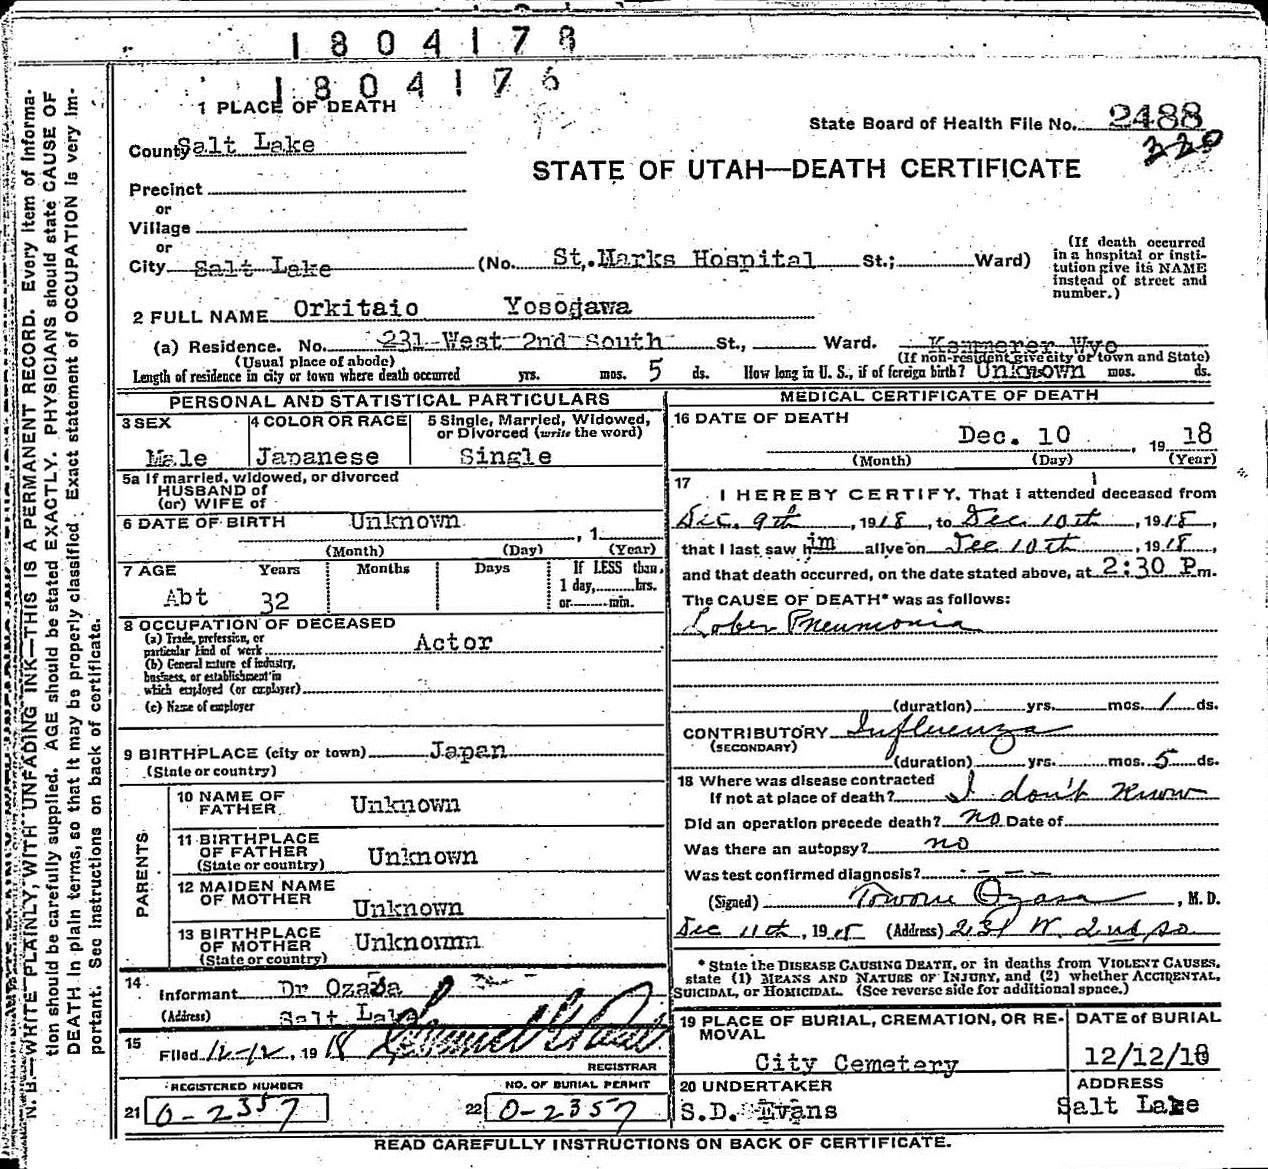 1804178
1804176
1 PLACE OF DEATH
State Board of Health File No. 2488
220
County Salt Lake
STATE OF UTAH—DEATH CERTIFICATE
Precinct
or
Village
or
City Salt Lake (No. St,.Marks Hospital St.; Ward)
(If death occurred in a hospital or insti-
tution give its NAME
instead of street and
number.)
2 FULL NAME Orkitaio Yosogawa
(a) Residence. No. 231 West 2nd South St., Ward. Kammerer Wyo
(Usual place of abode) (If non-resident give city or town and State)
Length of residence in city or town where death occurred yrs. mos. 5 ds. How long in U. S., if of foreign birth? Unknown mos. ds.
PERSONAL AND STATISTICAL PARTICULARS
3 SEX 4 COLOR OR RACE 5 Single, Married, Widowed,
or Divorced (write the word)
Male Japanese Single
5a If married, widowed, or divorced
HUSBAND of
(or) WIFE of
6 DATE OF BIRTH Unknown , 1
(Month) (Day) (Year)
7 AGE Years Months Days If LESS than
1 day, hrs.
or min.
Abt 32
8 OCCUPATION OF DECEASED
(a) Trade, profession, or
particular kind of work Actor
(b) General nature of industry,
business, or establishment in
which employed (or employer)
(c) Name of employer
9 BIRTHPLACE (city or town) Japan
(State or country)
PARENTS
10 NAME OF
FATHER Unknown
11 BIRTHPLACE
OF FATHER
(State or country) Unknown
12 MAIDEN NAME
OF MOTHER Unknown
13 BIRTHPLACE
OF MOTHER
(State or country) Unknownm
14
Informant Dr Ozasa
(Address) Salt Lake
15
Filed 12-12, 1918
REGISTRAR
REGISTERED NUMBER NO. OF BURIAL PERMIT
21 0-2357 22 0-2357
MEDICAL CERTIFICATE OF DEATH
16 DATE OF DEATH
Dec. 10 , 19 18
(Month) (Day) (Year)
17
I HEREBY CERTIFY, That I attended deceased from
Dec. 9th, 1918, to Dec 10th, 1918,
that I last saw him alive on Dec 10th, 1918,
and that death occurred, on the date stated above, at 2:30 Pm.
The CAUSE OF DEATH* was as follows:
Lober Pneumonia
(duration) yrs. mos. 1 ds.
CONTRIBUTORY Influenza
(SECONDARY)
(duration) yrs. mos. 5 ds.
18 Where was disease contracted
If not at place of death? I don't know
Did an operation precede death? no Date of
Was there an autopsy? no
Was test confirmed diagnosis?
(Signed) Ozasa, M.D.
Dec 11th, 1918 (Address) 231 W. 2nd So.
* State the DISEASE CAUSING DEATH, or in deaths from VIOLENT CAUSES,
state (1) MEANS AND NATURE OF INJURY, and (2) whether ACCIDENTAL,
SUICIDAL, or HOMICIDAL. (See reverse side for additional space.)
19 PLACE OF BURIAL, CREMATION, OR RE-
MOVAL
City Cemetery
DATE of BURIAL
12/12/18
20 UNDERTAKER
S.D. Evans
ADDRESS
Salt Lake
READ CAREFULLY INSTRUCTIONS ON BACK OF CERTIFICATE.
N. B.—WRITE PLAINLY, WITH UNFADING INK—THIS IS A PERMANENT RECORD. Every item of informa-
tion should be carefully supplied. AGE should be stated EXACTLY. PHYSICIANS should state CAUSE OF
DEATH in plain terms, so that it may be properly classified. Exact statement of OCCUPATION is very im-
portant. See instructions on back of certificate.